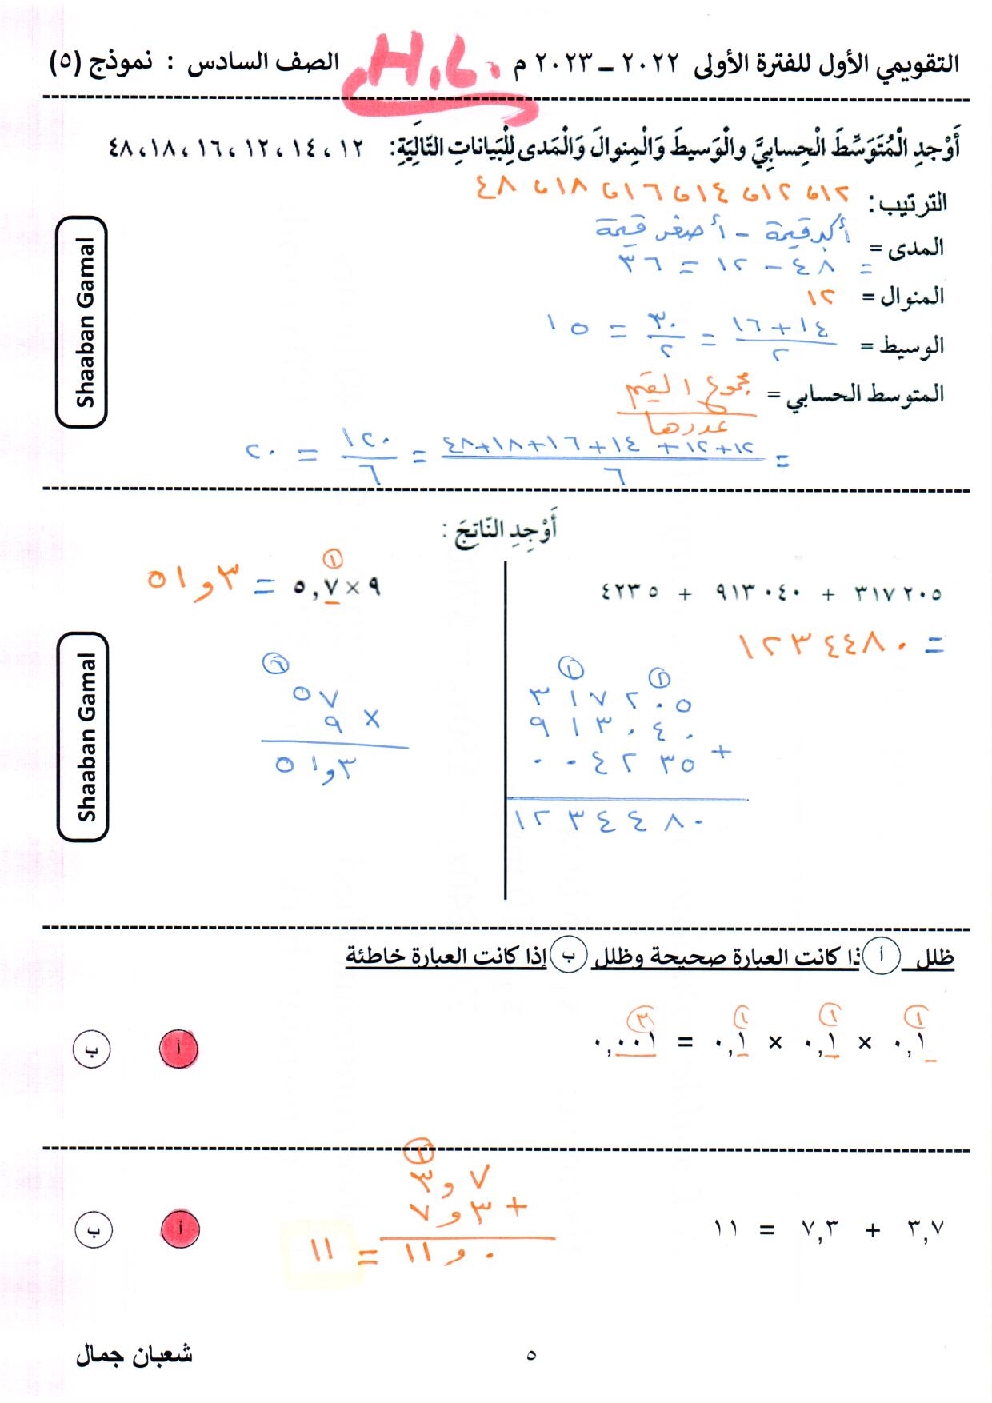 التقويمي الأول للفترة الأولى ٢٠٢٢ – ٢٠٢٣ م H.L. الصف السادس : نموذج (٥)
أَوْجدِ الْمُتَوَسِّطَ الْحِسابِيَّ والْوَسيطَ وَالْمِنوالَ وَالْمَدى لِلْبَياناتِ التّالِيَةِ: ١٢ ، ١٤ ، ١٢ ، ١٦ ، ١٨ ، ٤٨
الترتيب: ١٢ ، ١٢ ، ١٤ ، ١٦ ، ١٨ ، ٤٨
المدى = أكبر قيمة – أصغر قيمة
= ٤٨ – ١٢ = ٣٦
المنوال = ١٢
الوسيط = ١٤+١٦ / ٢ = ٣٠ / ٢ = ١٥
المتوسط الحسابي = مجموع القيم / عددها
= ١٢+١٢+١٤+١٦+١٨+٤٨ / ٦ = ١٢٠ / ٦ = ٢٠
Shaaban Gamal
أَوْجِدِ النّاتِجَ :
٣١٧٢٠٥ + ٩١٣٠٤٠ + ٤٢٣٥
= ١٢٣٤٤٨٠
١ ١
٣١٧٢٠٥
٩١٣٠٤٠
٠٠٤٢٣٥ +
١٢٣٤٤٨٠
١
٩ × ٥,٧ = ٥١و٣
٦
٥٧
٩ ×
٥١و٣
Shaaban Gamal
ظلل أ ذا كانت العبارة صحيحة وظلل ب إذا كانت العبارة خاطئة
١ ١ ١ ٣
٠,١ × ٠,١ × ٠,١ = ٠,٠٠١ أ ب
١
٧و٣
٣و٧ +
١١و٠ = ١١
٣,٧ + ٧,٣ = ١١ أ ب
٥
شعبان جمال